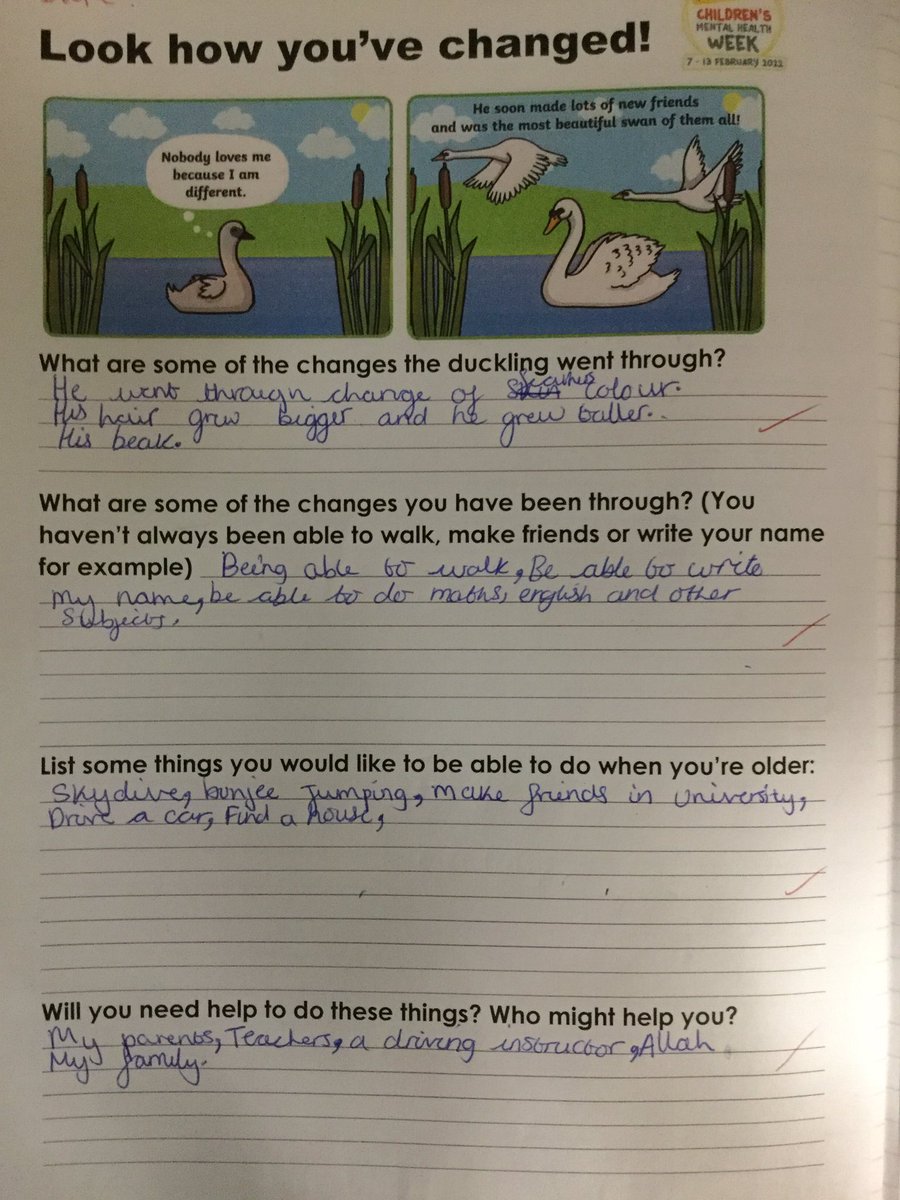 Look how you've changed!
CHILDREN'S
MENTAL HEALTH
WEEK
7 - 13 FEBRUARY 2022
Nobody loves me
because I am
different.
He soon made lots of new friends
and was the most beautiful swan of them all!
What are some of the changes the duckling went through?
He went through change of colour.
His hair grew bigger and he grew taller..
His beak.
What are some of the changes you have been through? (You
haven't always been able to walk, make friends or write your name
for example) Being able to walk, Be able to write
my name, be able to do maths, english and other
Subjects.
List some things you would like to be able to do when you're older:
Skydive, bunjee Jumping, make friends in University,
Drive a car, Find a house,
Will you need help to do these things? Who might help you?
My parents, Teachers, a driving instructor, Allah
My family.